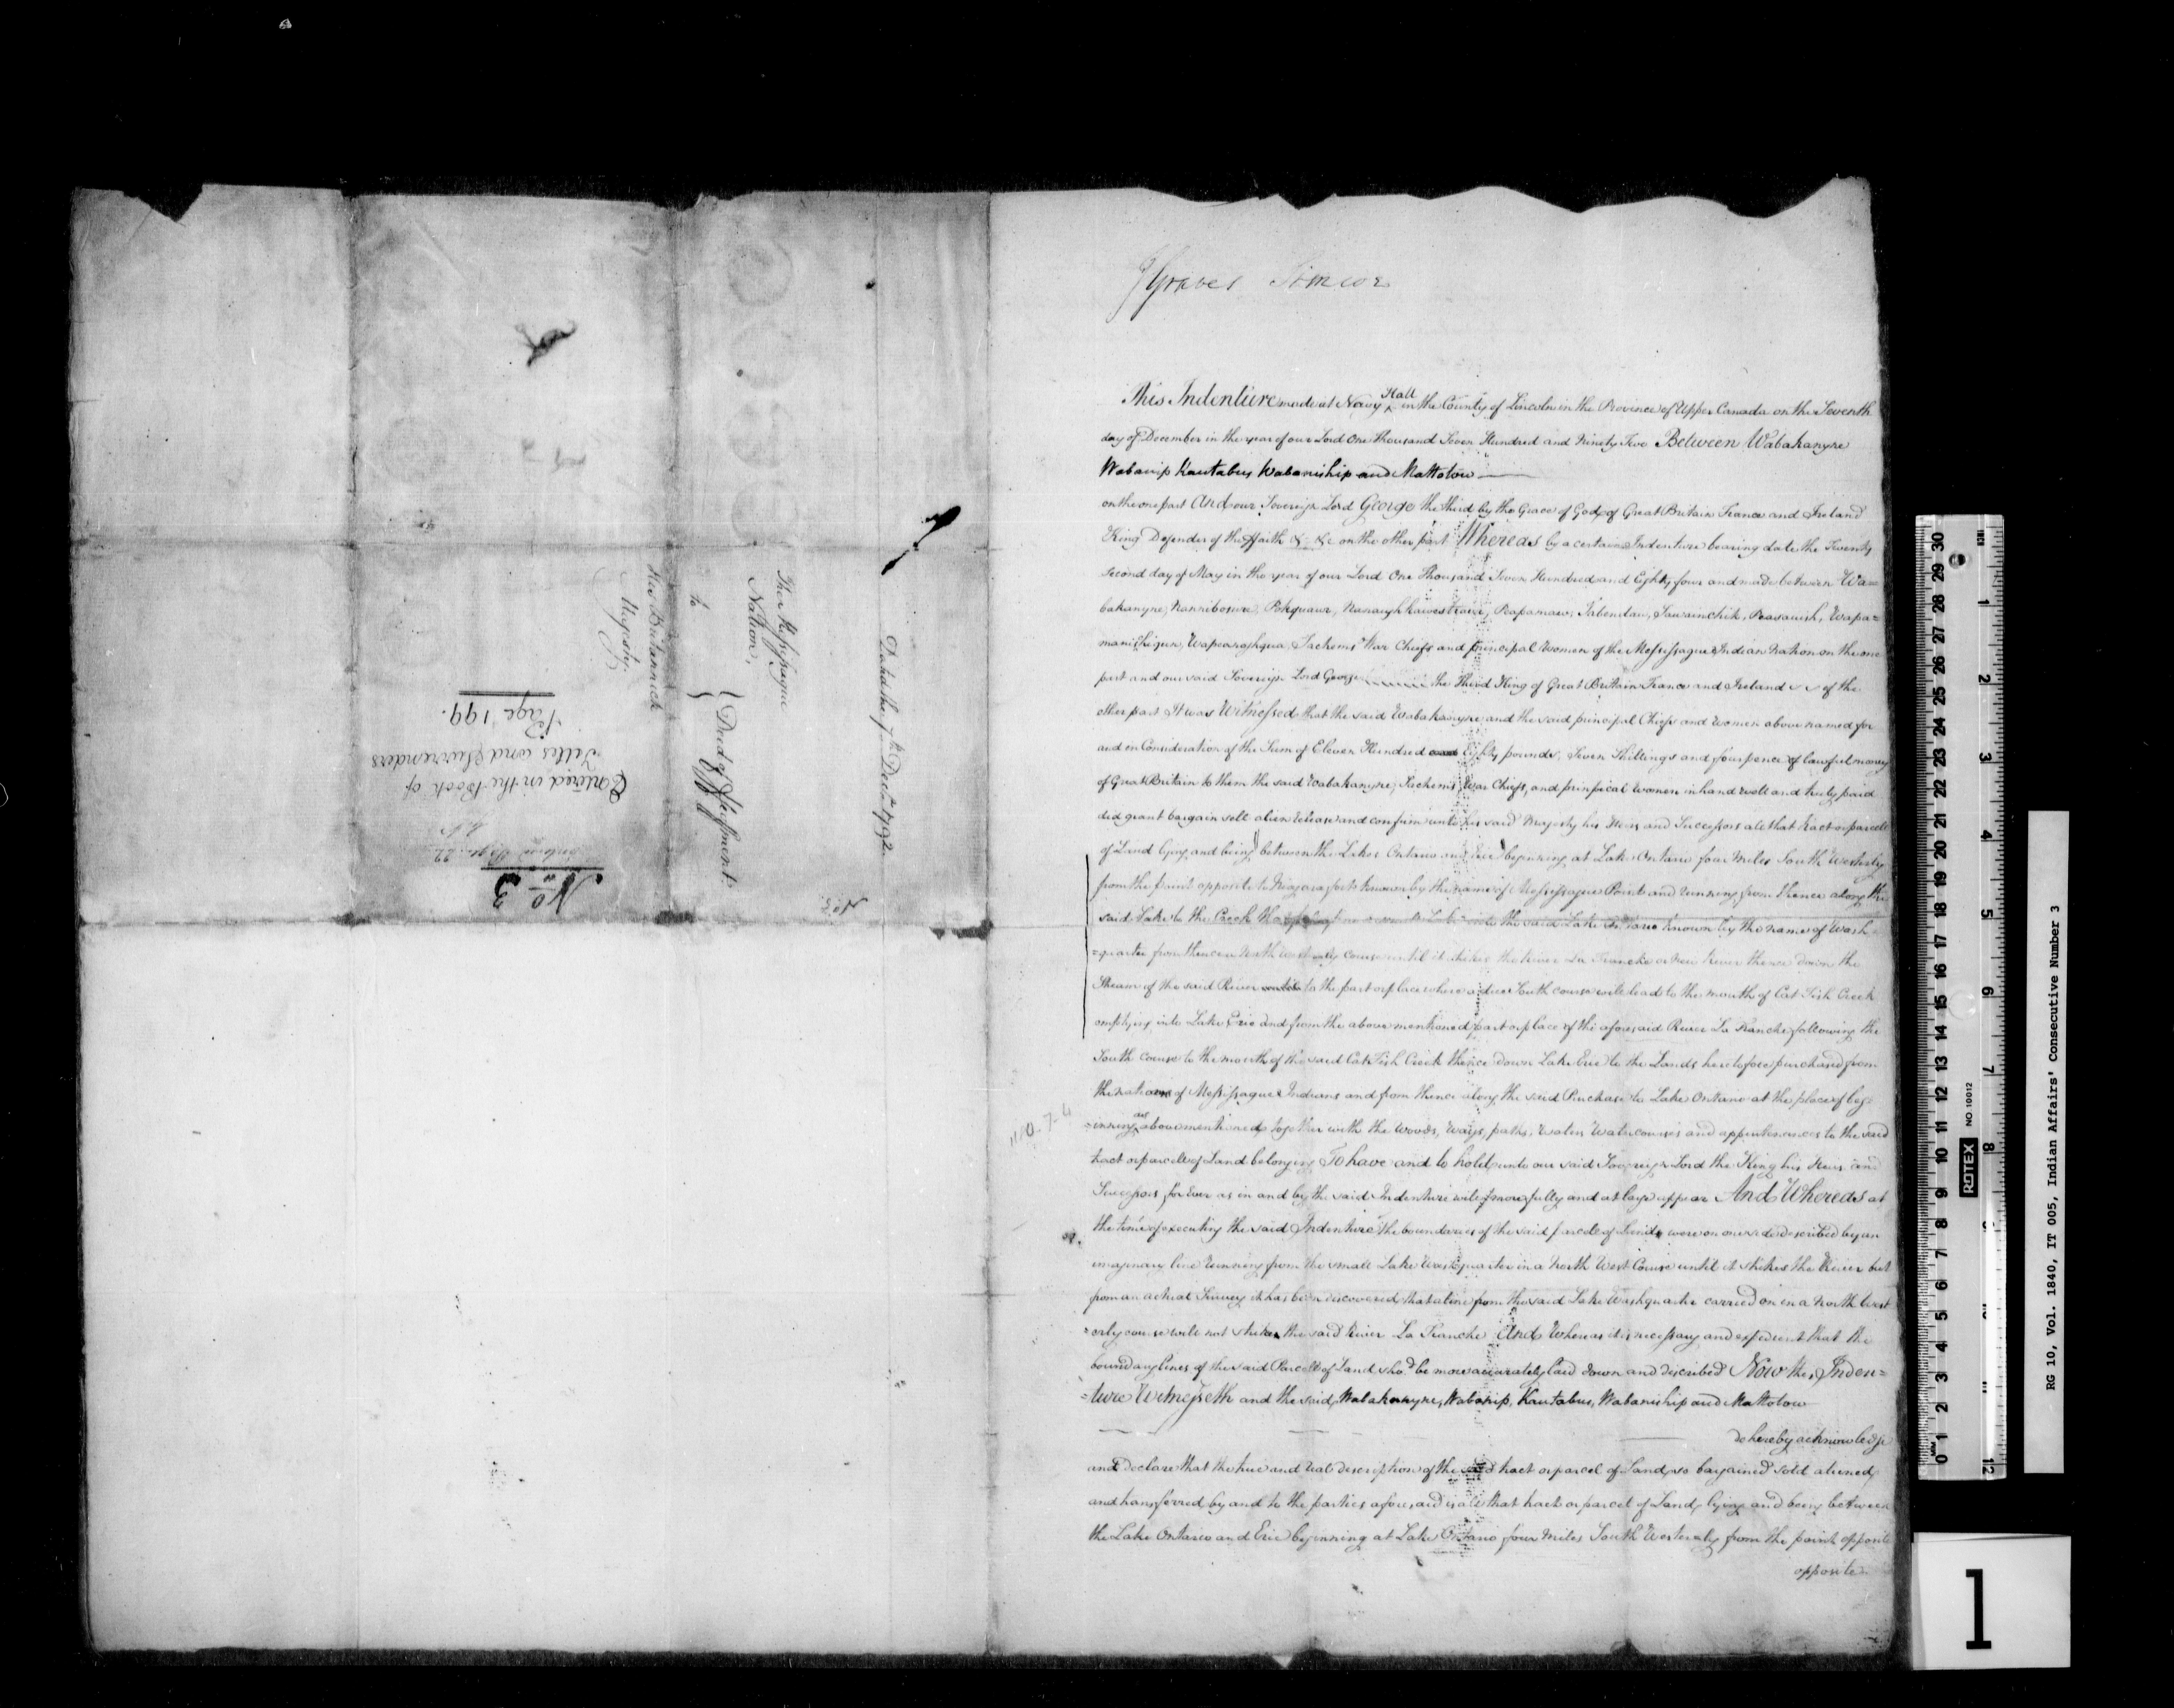 J Graves Simcoe
This Indenture made at Navy Hall in the County of Lincoln in the Province of Upper Canada on the Seventh
day of December in the year of our Lord One thousand Seven Hundred and Ninety Two Between Wabakanyne
Wabanip Kautabus Wabaniship and Mattotow
on the one part And our Sovereign Lord George the third by the Grace of God of Great Britain France and Ireland
King Defender of the Faith &c &c on the other part Whereas by a certain Indenture bearing date the Twenty
second day of May in the year of our Lord One Thousand Seven Hundred and Eighty four and made between Wa=
bakanyne, Nannibosure, Pokquawr, Nanaughkawestrawr, Peapamaw, Tabendau, Sawainchik, Peasanish, Wapa=
manischigun, Wapeanojhqua Sachems War Chiefs and principal Women of the Messissague Indian Nation on the one
part and our said Sovereign Lord George the Third King of Great Britain France and Ireland &c &c of the
other part It was Witnessed that the said Wabakanyne and the said principal Chiefs and Women above named for
and in Consideration of the Sum of Eleven Hundred and Eighty pounds, Seven Shillings and fourpence of lawful money
of Great Britain to them the said Wabakanyne, Sachems, War Chiefs, and prinpical Women in hand well and truly paid
did grant bargain sell alien release and confirm unto his said Majesty his Heirs and Successors all that tract or parcell
of Land lying and being between the Lakes Ontario and Erie beginning at Lake Ontario four Miles South Westerly
from the point opposite to Niagara fort known by the name of Messissague Point and running from thence along the
said Lake to the Creek that the said Lake Ontario known by the name of Wash
=quarter from thence a North westerly course until it strikes the River La Tranche or New River thence down the
Stream of the said River to the part or place where a due South course will lead to the mouth of Cat Fish Creek
emptying into Lake Erie and from the above mentioned part or place of the aforesaid River La Tranche following the
South course to the mouth of the said Cat Fish Creek thence down Lake Erie to the Lands heretofore purchased from
the nation of Messissague Indians and from thence along the said Purchase to Lake Ontario at the place of beg
=inning as above mentioned together with the Woods, Ways, paths, Waters Watercourses and appurtenances to the said
tract or parcell of Land belonging To have and to hold unto our said Sovereign Lord the King his Heirs and
Successors for Ever as in and by the said Indenture will more fully and at large appear And Whereas at
the time of executing the said Indenture the boundaries of the said parcell of Land were on one side described by an
imaginary line running from the small Lake Washquarter in a North West Course until it strikes the River but
from an actual Survey it has been discovered that a line from the said Lake Washquarter carried on in a North West
=erly course will not strike the said River La Tranche And Whereas it is necessary and expedient that the
boundary lines of the said Parcell of Land shod be more accurately laid down and discribed Now this Inden=
=ture Witnesseth and the said Wabakanyne, Wabanip, Kautabus, Wabaniship and Mattotow
do hereby acknowledge
and declare that the true and real description of the said tract or parcel of Land so bargained sold aliened
and transferred by and to the parties aforesaid is all that tract or parcel of Land, lying and being between
the Lake Ontario and Erie beginning at Lake Ontario four Miles South Westerly from the point opposite
opposite
1180.7.4
Dated the 7th Decr. 1792.
No. 3.
The Messissague
Nation,
to
His Britannick
Majesty.
Deed of Feoffment
No. 3
Entered in the Book of
Titles and Surrenders
Page 199.
RG 10, Vol. 1840, IT 005, Indian Affairs' Consecutive Number 3
ROTEX NO. 10012
1